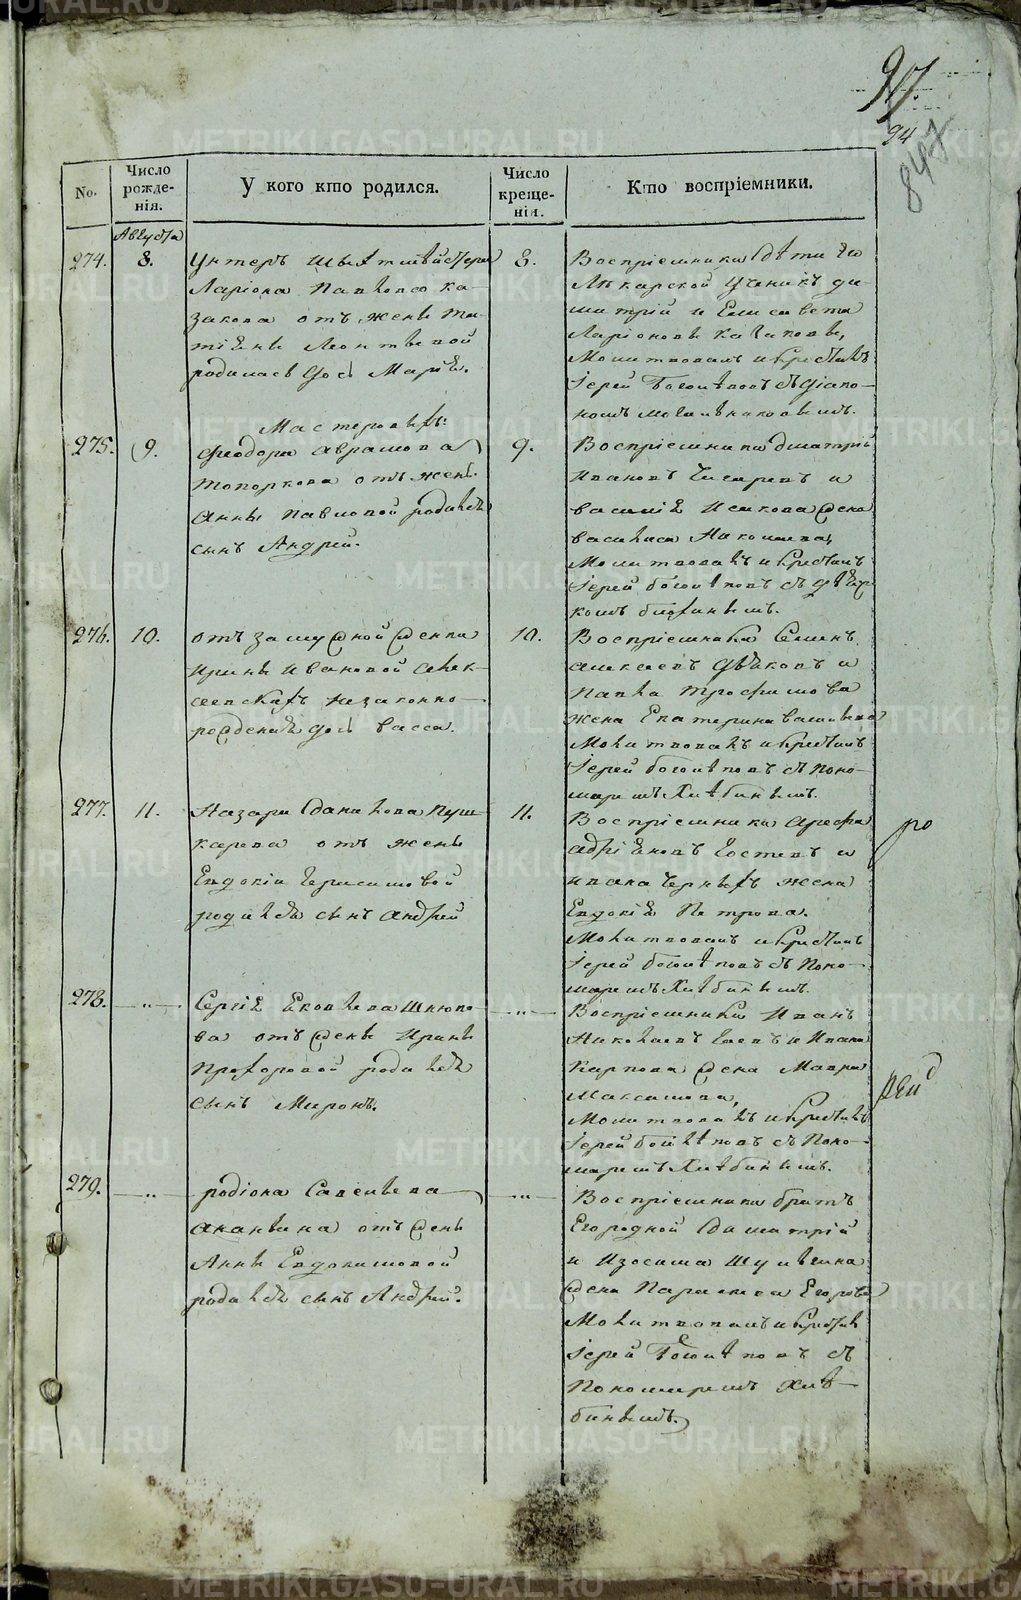 97.
94
847
No.
Число рожде-нія.
У кого кто родился.
Число креще-нія.
Кто воспріемники.
Августа
274.
8.
Унтеръ Шихтмейстера
Ларіона Павлова ка-
закова отъ жены та-
тіяны Леонтьевой
родилась дочь Марія.
8.
Воспріемники
Лѣкарской ученикъ ди-
митрій и Елисавета
Ларіоновы казаковы,
Молитвовалъ и крестилъ
Іерей Боголѣповъ съ діако-
номъ
275.
9.
Мастеровыхъ:
Феодора Аврамова
Топоркова отъ жены
Анны Павловой родился
сынъ Андрей.
9.
Воспріемники дмитрій
Ивановъ и
жена
василиса
Молитвовалъ и крестилъ
Іерей боголѣповъ съ
276.
10.
отъ замужной женки
Ирины Ивановой Алек-
сеевскихъ незаконно-
рожденная дочь васса.
10.
Воспріемники Семенъ
алексеевъ и
Павла трофимова
жена Екатерина васильева
Молитвовалъ и крестилъ
Іерей боголѣповъ съ Поно-
маремъ Хлѣбинымъ.
277.
11.
Назара данилова Пуш-
карева отъ жены
Евдокіи Герасимовой
родился сынъ андрей
11.
Воспріемники арефа
адріяновъ Костевъ и
ивана черныхъ жена
Евдокія Петрова.
Молитвовалъ и крестилъ
Іерей боголѣповъ съ Поно-
маремъ Хлѣбинымъ.
ро
278.
"
Сергія Яковлева Шкюпо-
ва отъ жены Ирины
Прохоровой родился
сынъ Миронъ.
"
Воспріемники Иванъ
Николаевъ и Ивана
Карпова жена Мавра
Максимова,
Молитвовалъ и крестилъ
Іерей боголѣповъ съ Поно-
маремъ Хлѣбинымъ.
279.
"
родіона Савельева
Акинфина отъ жены
Анны Евдокимовой
родился сынъ Андрей.
"
Воспріемники братъ
Его родной димитрій
и Изосима
жена Параскева Егорова
Молитвовалъ и крестилъ
Іерей Боголѣповъ съ
Пономаремъ Хлѣ-
бинымъ.
METRIKI.GASO-URAL.RU